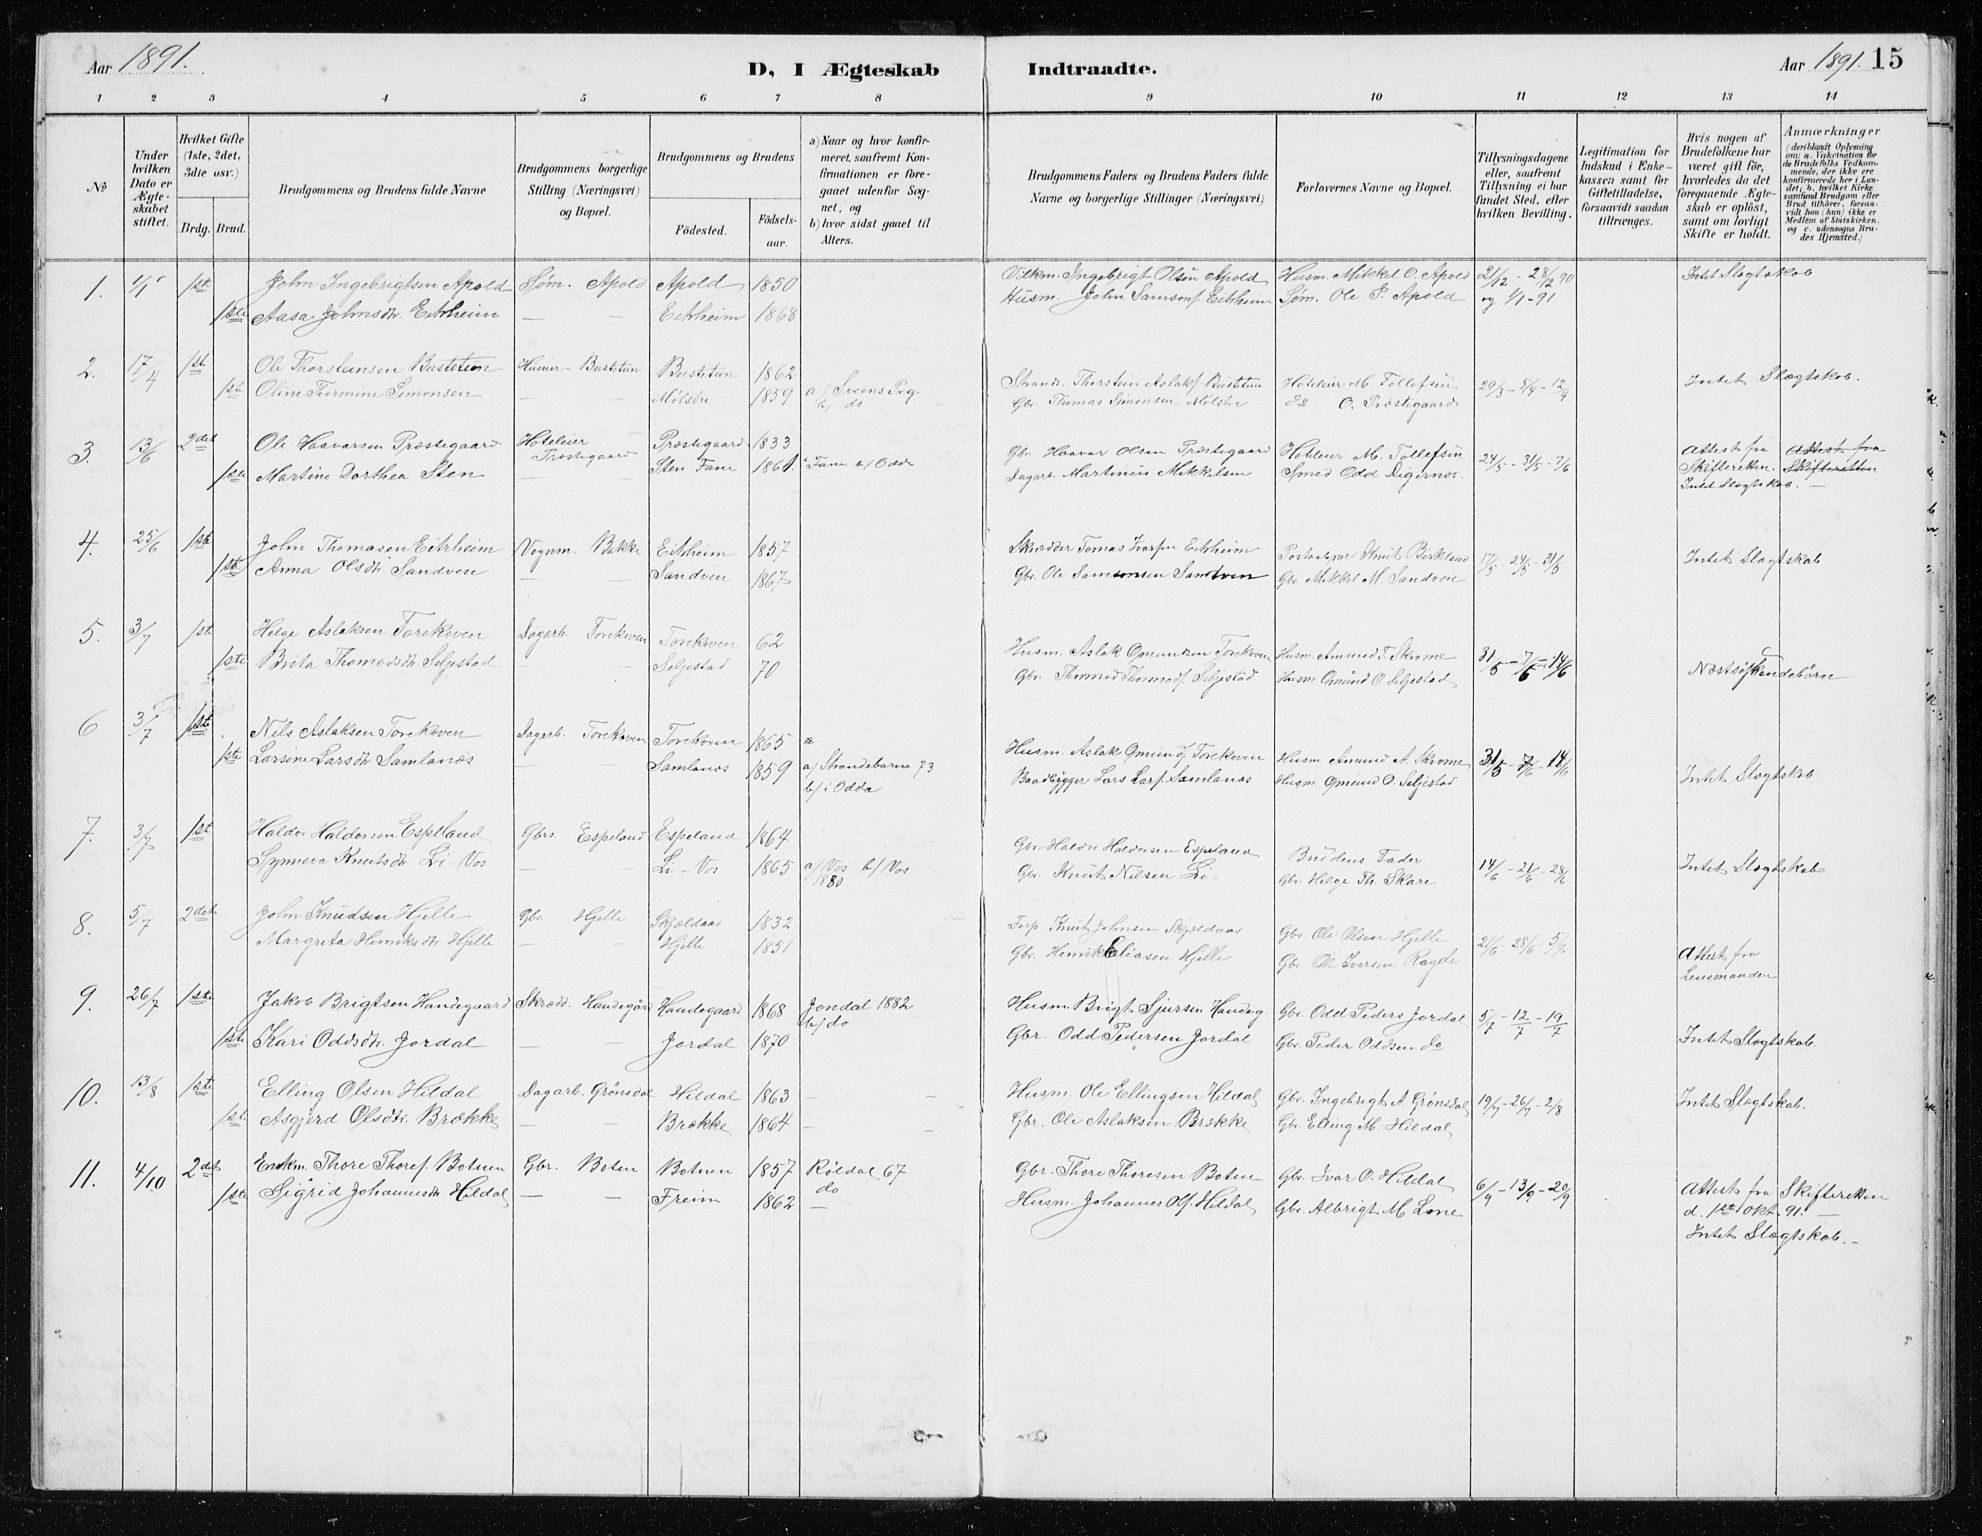 Aar 1891.
D, I Ægteskab Indtraadte.
Aar 1891. 15
1 2 3 4 5 6 7 8 9 10 11 12 13 14
No
Under hvilken Dato er Ægteskabet stiftet.
Hvilket Gifte (1ste, 2det, 3die osv.)
Brdg. Brud.
Brudgommens og Brudens fulde Navne
Brudgommens borgerlige Stilling (Næringsvei) og Bopæl.
Brudgommens og Brudens
Födested. Födselsaar.
a) Naar og hvor konfirmeret, saafremt Konfirmationen er foregaaet udenfor Sognet, og
b) hvor sidst gaaet til Alters.
Brudgommens Faders og Brudens Faders fulde Navne og borgerlige Stillinger (Næringsvei)
Forlovernes Navne og Bopæl.
Tillysningsdagene eller, saafremt Tillysning ei har fundet Sted, efter hvilken Bevilling.
Legitimation for Indskud i Enkekassen samt for Giftetilladelse, forsaavidt saadan tiltrænges.
Hvis nogen af Brudefolkene har været gift för, hvorledes da det foregaaende Ægteskab er oplöst, samt om lovligt Skifte er holdt.
Anmærkninger (deriblandt Oplysning om: a. Vakcination for de Brudefolks Vedkommende, der ikke ere konfirmerede her i Landet; b. hvilket Kirkesamfund Brudgom eller Brud tilhörer, forsaavidt han (hun) ikke er Medlem af Statskirken, og c. udensogns Brudes Hjemsted.)
1. 1ste John Ingebrigtsen Apold Søm. Apold Apold 1850 Ingebrigt Olsen Apold Husm. Mikkel O. Apold 21/12 - 28/12 90 Intet Slægtskab
1ste Aasa Johnsdtr. Eitrheim — — Eitrheim 1868 Husm. John Samsons. Eitrheim Søm. Ole I. Apold og 1/1-91
2. 17/4 1ste Ole Thorsteinsen Bustetun Husmr - Bustetun Bustetun 1862 Strands. Thorstein Aslaks. Bustetun Hoteleier M. Tollefsen 29/3 - 5/4 - 12/4 Intet Slægtskab.
1ste Oline Thormine Simonsen — — Mølstre 1859 a/ Sveens Prg. b/ do Gbr. Thomas Simonsen Mølstre do O. Præstegaard
3. 13/6 2det Ole Haavarsen Præstegaard Hoteleier Præstegaard Præstegaard 1833 Gbr. Haavar Olsen Præstegaard Hoteleier M. Tollefsen 24/5 - 31/5 - 7/6 Attest fra Skifteretten. Intet Slægtskab. Attest fra Skifteretten —
1ste Martine Dorthea Sten Sten Fane 1861 Fane b/ Odda Dagarb. Martinus Mikkelsen Smed Odd Digernæs.
4. 25/6 1ste John Thomasen Eitrheim Vognm. Bakke Eitrheim 1857 Skrædder Tomas Ivarsen Eitrheim Knut Birkland 17/5 - 24/5 - 31/5 Intet Slægtskab
1ste Anna Olsdtr Sandven — — Sandven 1867 Gbr. Ole Samsonsen Sandven Gbr Mikkel M. Sandven
5. 3/7 1ste Helge Aslaksen Torekoven Dagarb. Torekoven Torekoven 62 Husm. Aslak Omundsen Torekoven Husm. Amund T. Skrome 31/5 - 7/6 - 14/6 Næstsøskendebörn
1ste Brita Thomodsdtr Seljestad — — Seljestad 70 Gbr. Thormod Thormods. Seljestad Husm. Omund O. Seljestad
6 3/7 1ste Nils Aslaksen Torekoven Dagarb. Torekoven Torekoven 1865 Husm. Aslak Omunds. Torekoven Husm. Amund A. Skrome 31/5 - 7/6 - 14/6 Intet Slægtskab
1ste Larsine Larsdtr Samlanæs — — Samlanæs 1859 a/ Strandebarm 73 b/ i Odda Baadbygger Lars Lars. Samlanæs Husm. Omund O. Seljestad
7. 3/7 1ste Haldor Haldorsen Espeland Gbrs. Espeland Espeland 1864 Gbr. Haldor Haldorsen Espeland Brudens Fader 14/6 - 21/6 - 28/6 Intet Slægtskab
Synneva Knutsdtr Li - Vos — — Li - Vos 1865 a/ Vos 1880 b/ Vos Gbr. Knut Nilsen Li - Gbr. Helge Th. Skare
8. 5/7 2det John Knudsen Hjelle Gbr. Hjelle Skjeldaas 1832 Knut Johnsen Skjeldaas Gbr Ole Olsen Hjelle 21/6 - 28/6 - 5/7 Attest fra Lensmanden
Margreta Henriksdtr Hjelle — — Hjelle 1851 Gbr. Henrik Eliasen Hjelle Gbr. Ole Iversen Ragde
9. 26/7 1ste Jakob Brigtsen Handegaard Skrædd. Handegård Handegaard 1868 Jondal 1882 b/ do Husm. Brigt Sjursen Handeg. Gbr. Odd Peders. Jordal 5/7 - 12/7 - 19/7
1ste Kari Oddsdtr. Jordal — — Jordal 1870 Gbr. Odd Pedersen Jordal Gbr. Peder Oddsen do Intet Slægtskab.
10. 13/8 1ste Elling Olsen Hildal Dagarb. Grønsdal Hildal 1863 — — Husm. Ole Ellingsen Hildal Gbr. Ingebrigt A Grønsdal 19/7 - 26/7 - 2/8 Intet Slægtskab.
1ste Asgjerd Olsdtr. Brække — — Brække 1864 — — Gbr. Ole Aslaksen Brække Gbr. Elling M. Hildal
11. 4/10 2det Enkm. Thore Thores. Botnen Gbr. Boten Botnen 1857 Røldal 67 do Gbr. Thore Thoresen Boten Gbr. Ivar O. Hildal 6/9 - 13/9 - 20/9 Attest fra Skifteretten d. 1ste Okt. 91. —
1ste Sigrid Johannesdtr. Hildal — — Freim 1862 — Husm. Johannes Ols. Hildal Gbr. Albrigt M. Lone Intet Slægtskab. —